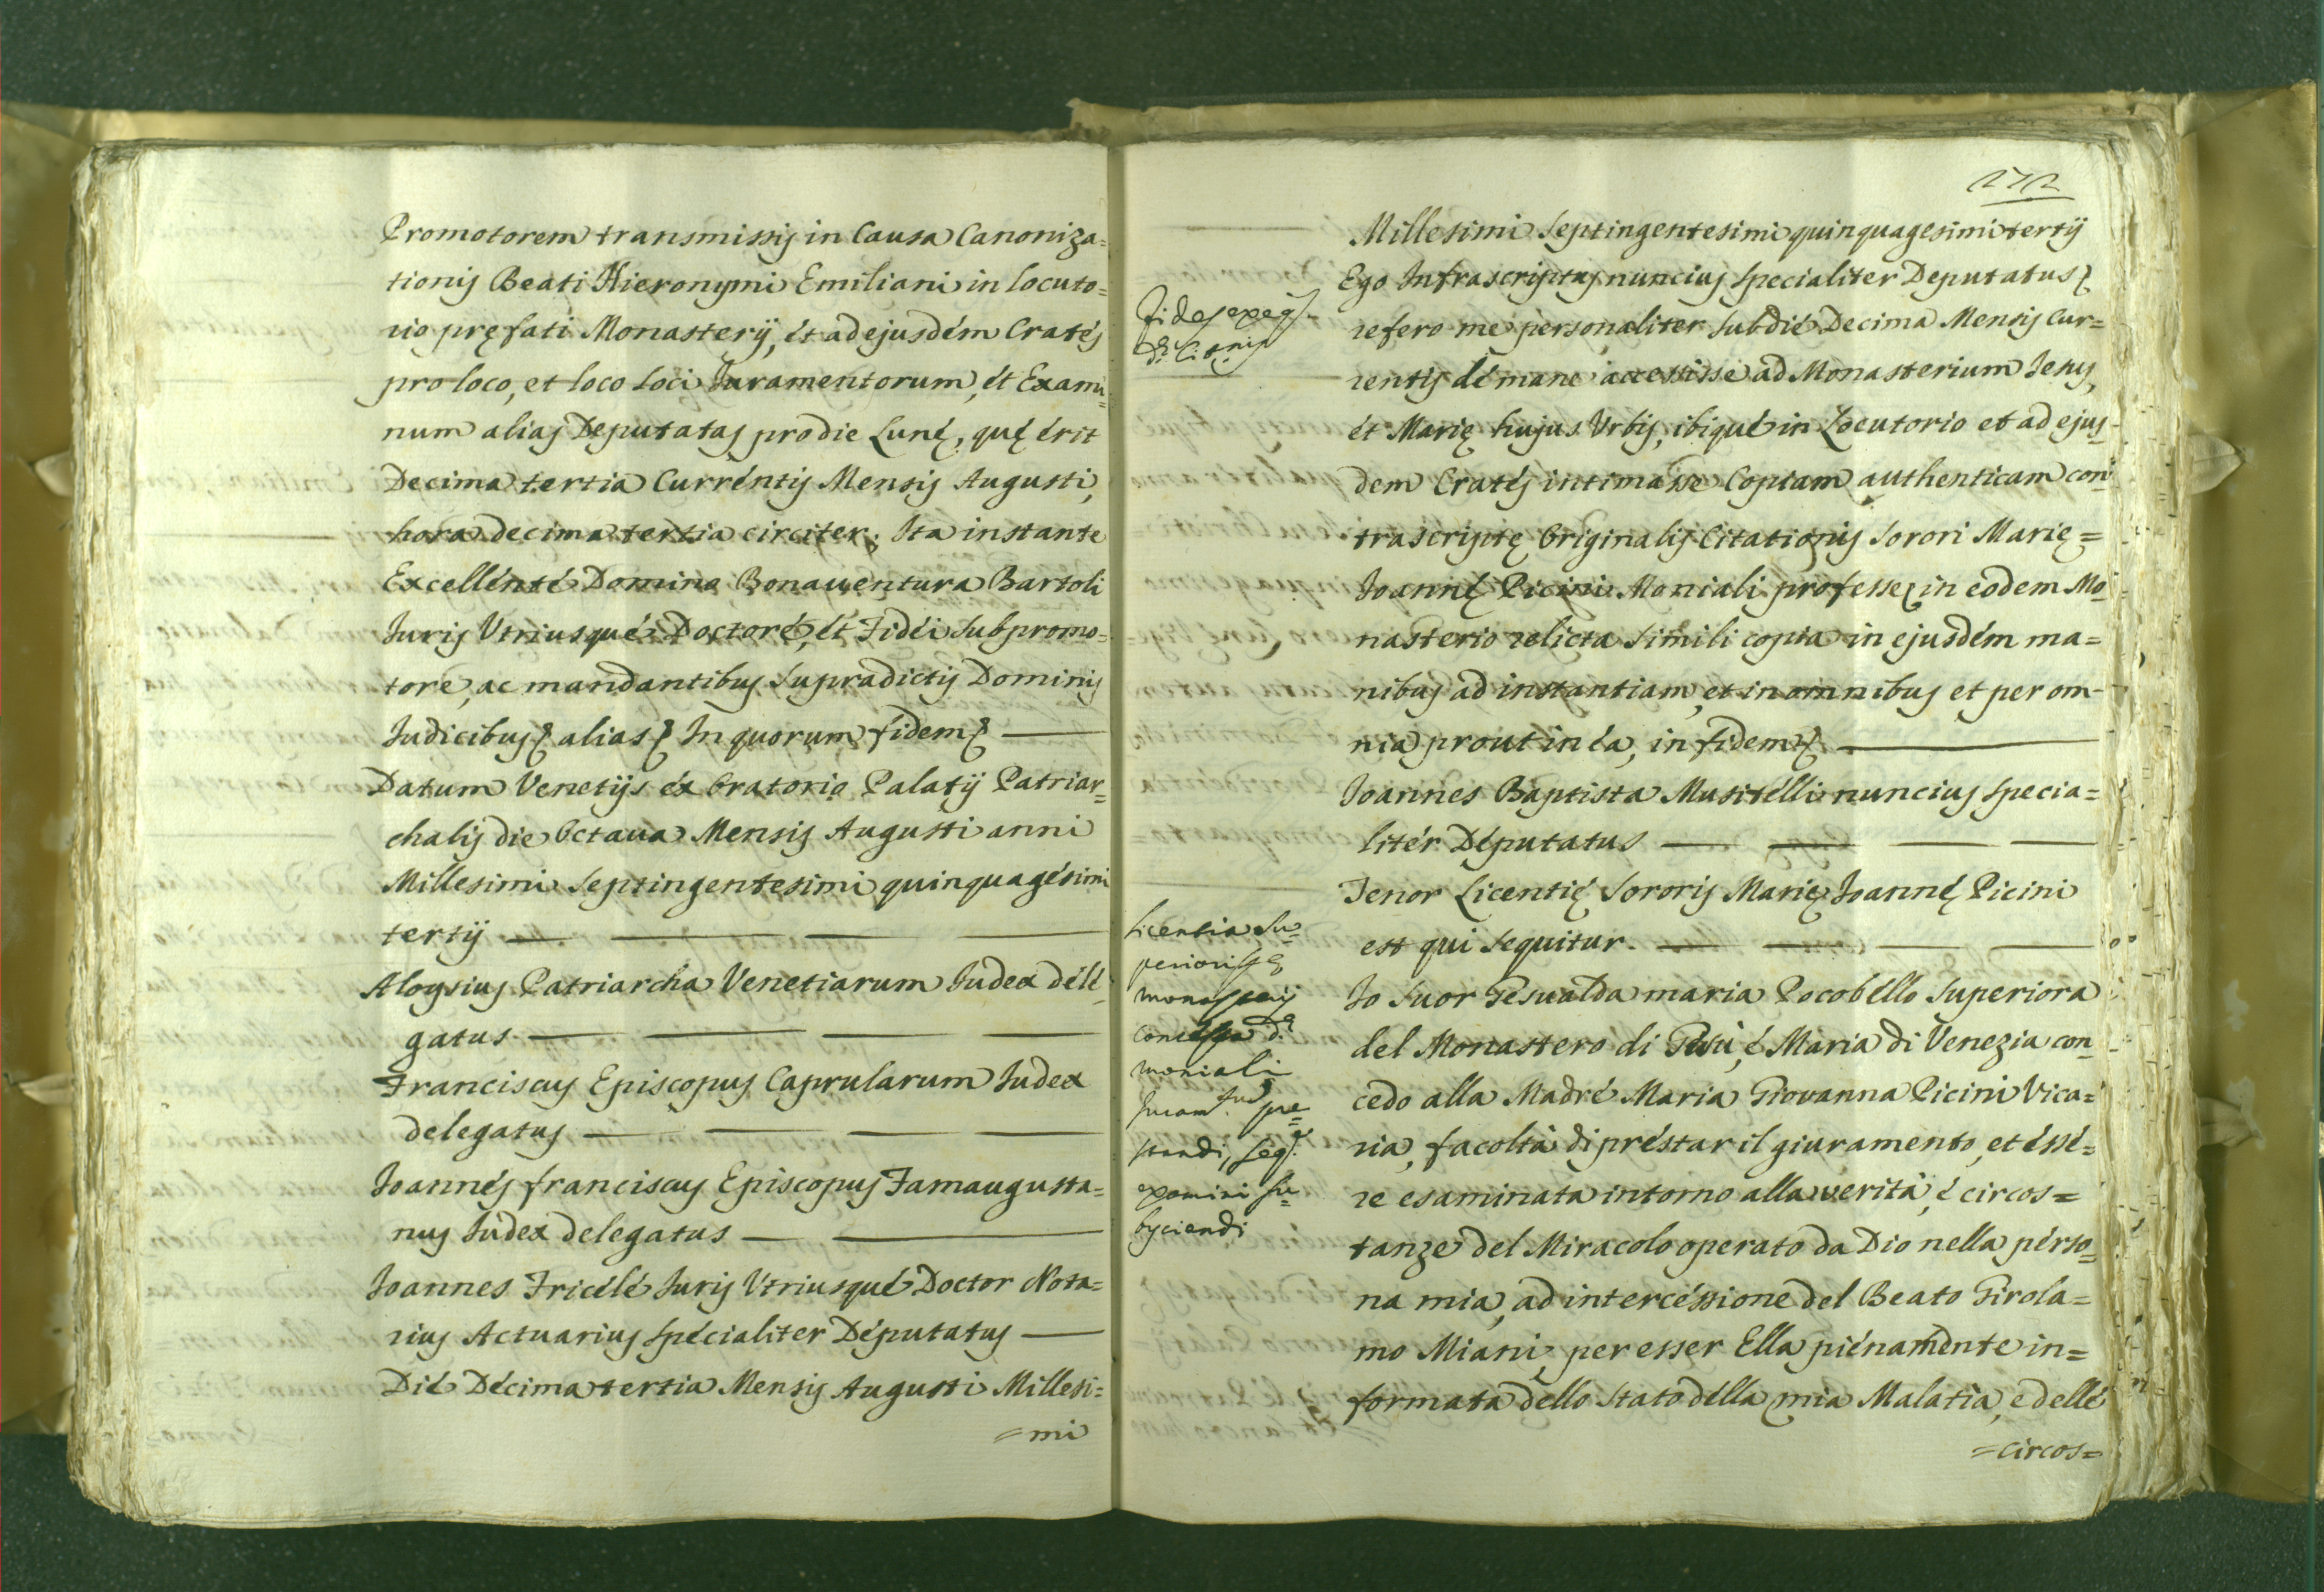 Promotorem transmissis in Causa Canoniza=
tionis Beati Hieronymi Emiliani in locuto=
rio pręfati Monasterij, ét ad ejusdém Cratés
pro loco, et loco Loci Juramentorum, ét Exami=
num alias Deputatas pro die Lunę, quę érit
Decima tertia Curréntis Mensis Augusti,
hora decima tertia circiter; Ita instante
Excellénté Domino Bonauentura Bartoli
Juris Vtriusqué Doctoré, ét Fidéi subpromo=
toré, ac mandantibus supradictis Dominis
Judicibus alias In quorum fidem —
Datum Venetijs éx Oratorio Palatij Patriar=
chalis die Octaua Mensis Augusti anni
Millesimi septingentesimi quinquagésimi
tertij — — — —
Aloysius Patriarcha Venetiarum Judex délé=
gatus — — — —
Franciscus Episcopus Caprularum Judex
delegatus — — — —
Joannés franciscus Episcopus Famaugusta=
nus Judex delegatus — —
Joannes Fricélé Juris Vtriusqué Doctor Nota=
rius Actuarius spécialiter Députatus —
Dié Décima tertia Mensis Augusti Millesi=
=mi
272
Millesimi septingentesimi quinquagesimi tertij
Ego Infrascriptus nuncius specialiter Deputatus
refero me personaliter sub dié Decima Mensis Cur=
rentis dé mane accessisse ad Monasterium Jesus,
ét Marię hujus Vrbis, ibiqué in Locutorio et ad ejus=
dem Cratés intimasse Copiam authenticam con=
trascriptę Originalis Citationis Sorori Marię=
Joannę Picini Moniali professę in eodem Mo=
nasterio relicta simili copia in ejusdém ma=
nibus ad instantiam, et in omnibus et per om-
nia prout in éa, in fidem —
Joannes Baptista Musitélli nuncius specia=
litér Députatus — — — —
Tenor Licentię Sororis Marię Joannę Picini
est qui sequitur. — — — —
Io Suor Gesualda maria Pocobéllo Superiora
del Monastero di Gesù, é Maria di Venezia con=
cedo alla Madré Maria Giovanna Picini Vica=
ria, facoltà di préstar il giuramento, et éssé=
re esaminata intorno alla verità, é circos=
tanze del Miracolo operato da Dio nella pérso=
na mia, ad intercéssione del Beato Girola=
mo Miani, per esser Ella piénaménte in=
formata dello stato délla mia Malatia, e dellé
=circos=
Fides exeq.
Licentia Su=
perioris
monasterij
concessa d.
moniali
Juram.tum pre=
standi, seq.
examini su=
byciendi